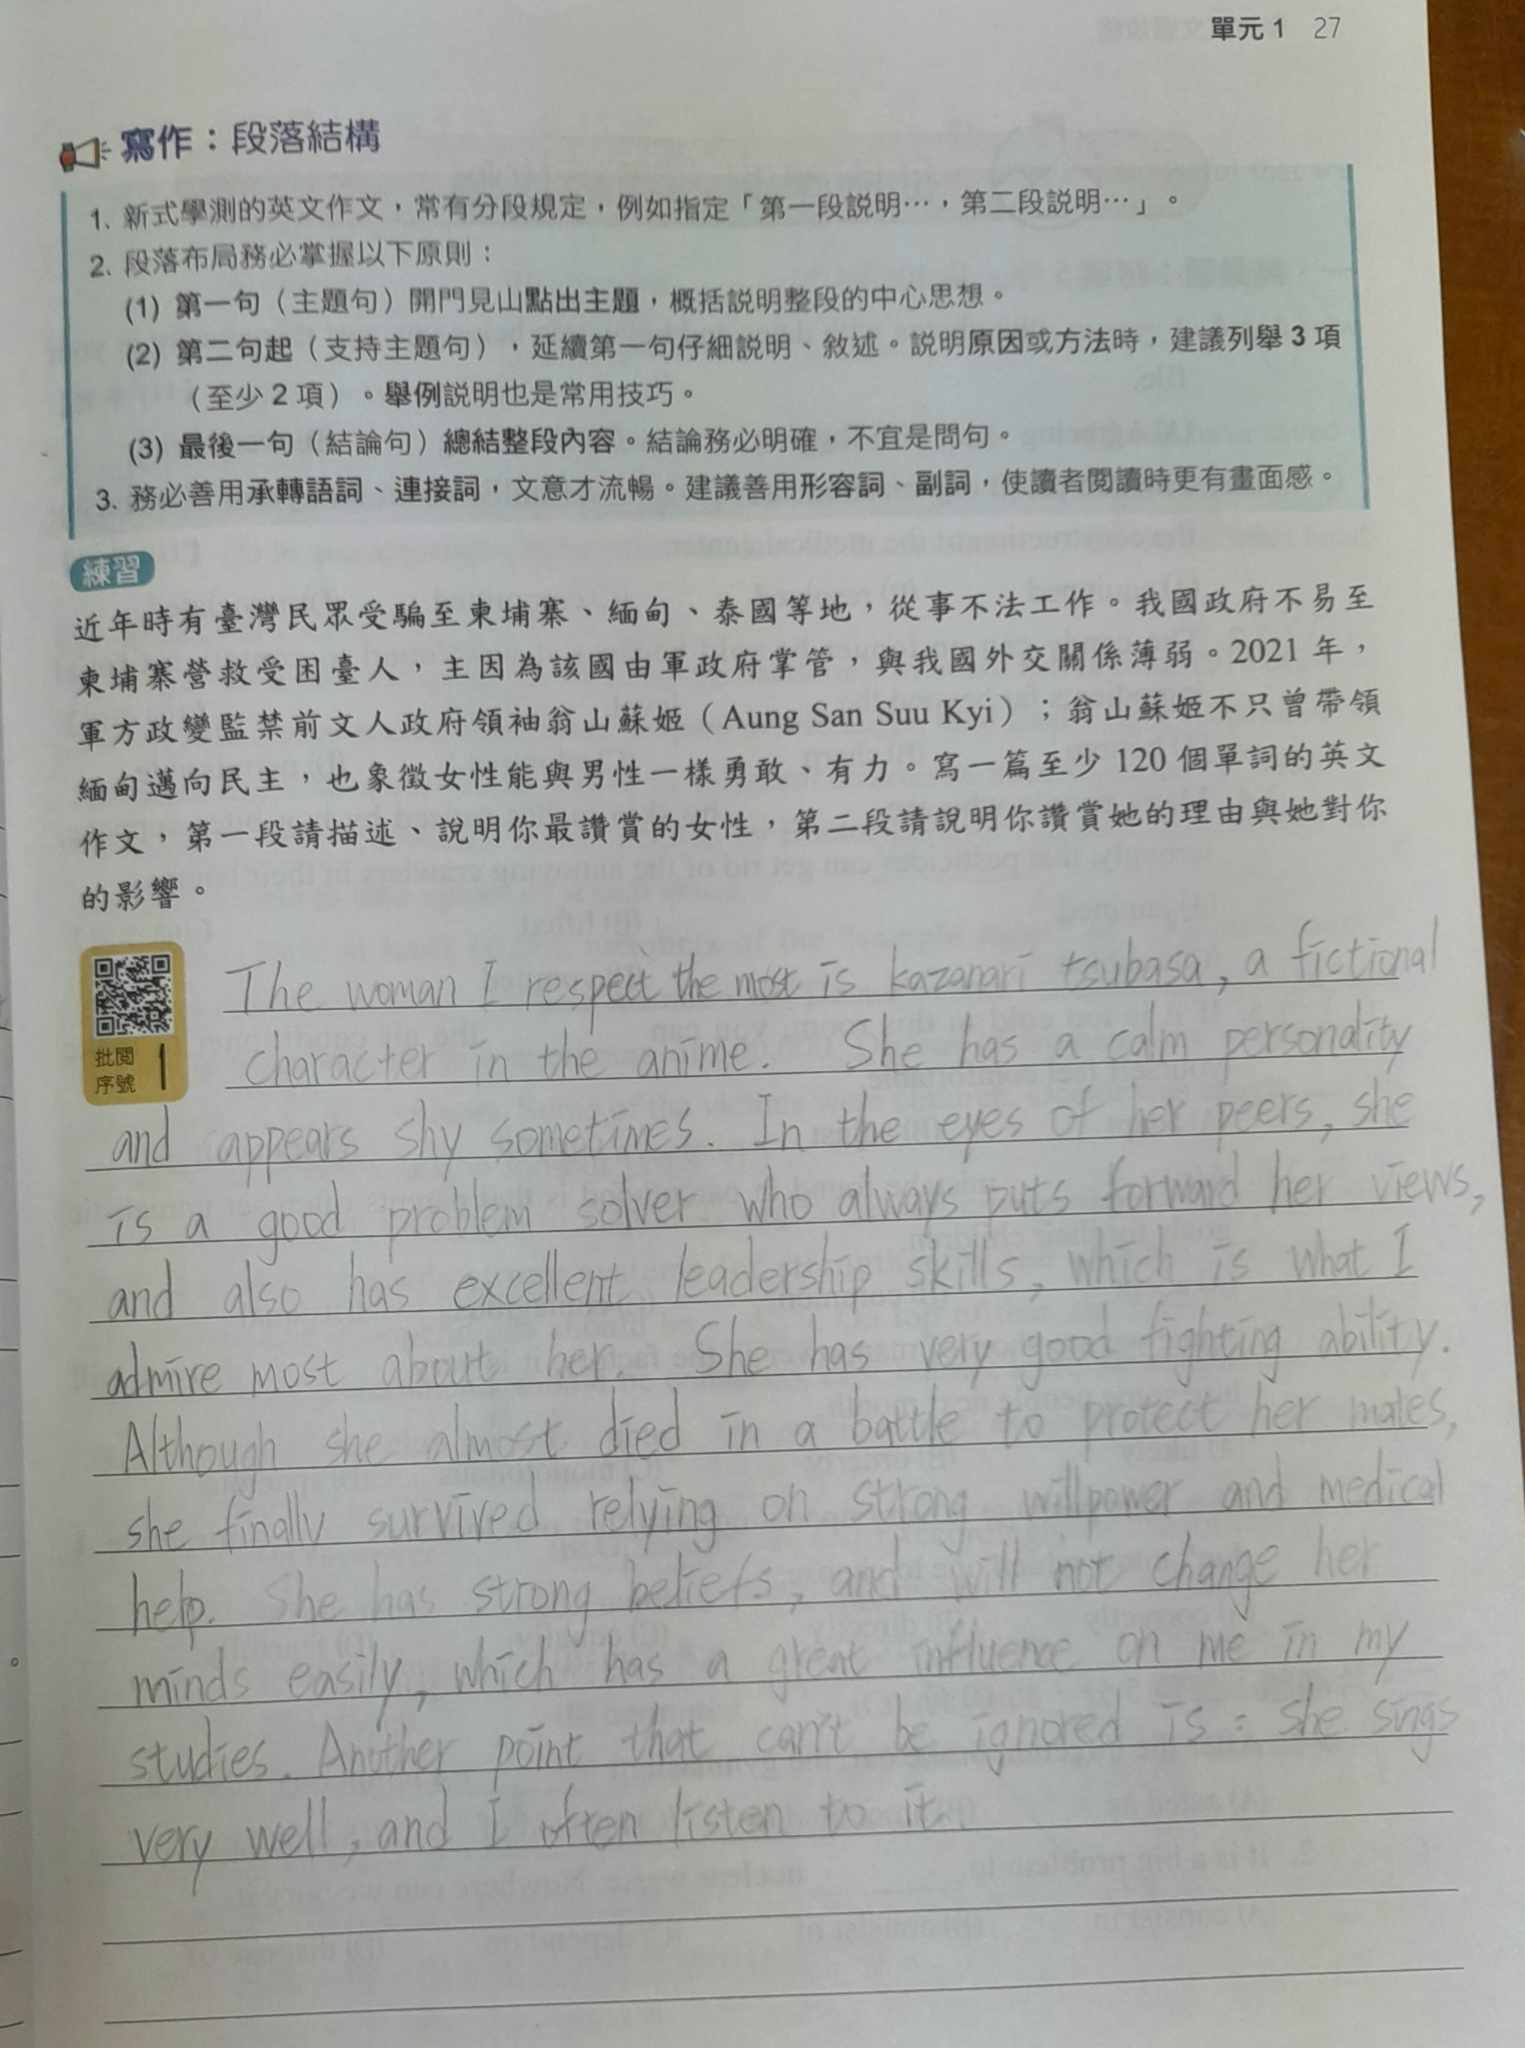 單元 1 27
寫作：段落結構
1. 新式學測的英文作文，常有分段規定，例如指定「第一段說明…，第二段說明…」。
2. 段落布局務必掌握以下原則：
(1) 第一句（主題句）開門見山點出主題，概括說明整段的中心思想。
(2) 第二句起（支持主題句），延續第一句仔細說明、敘述。說明原因或方法時，建議列舉 3 項
（至少 2 項）。舉例說明也是常用技巧。
(3) 最後一句（結論句）總結整段內容。結論務必明確，不宜是問句。
3. 務必善用承轉語詞、連接詞，文意才流暢。建議善用形容詞、副詞，使讀者閱讀時更有畫面感。
練習
近年時有臺灣民眾受騙至柬埔寨、緬甸、泰國等地，從事不法工作。我國政府不易至
柬埔寨營救受困臺人，主因為該國由軍政府掌管，與我國外交關係薄弱。2021 年，
軍方政變監禁前文人政府領袖翁山蘇姬（Aung San Suu Kyi）；翁山蘇姬不只曾帶領
緬甸邁向民主，也象徵女性能與男性一樣勇敢、有力。寫一篇至少 120 個單詞的英文
作文，第一段請描述、說明你最讚賞的女性，第二段請說明你讚賞她的理由與她對你
的影響。
批閱
序號 1
The woman I respect the most is kazanari tsubasa, a fictional
character in the anime. She has a calm personality
and appears shy sometimes. In the eyes of her peers, she
is a good problem solver who always puts forward her views,
and also has excellent leadership skills, which is what I
admire most about her. She has very good fighting ability.
Although she almost died in a battle to protect her males,
she finally survived relying on strong willpower and medical
help. She has strong beliefs, and will not change her
minds easily, which has a great influence on me in my
studies. Another point that can't be ignored is : she sings
very well, and I often listen to it.